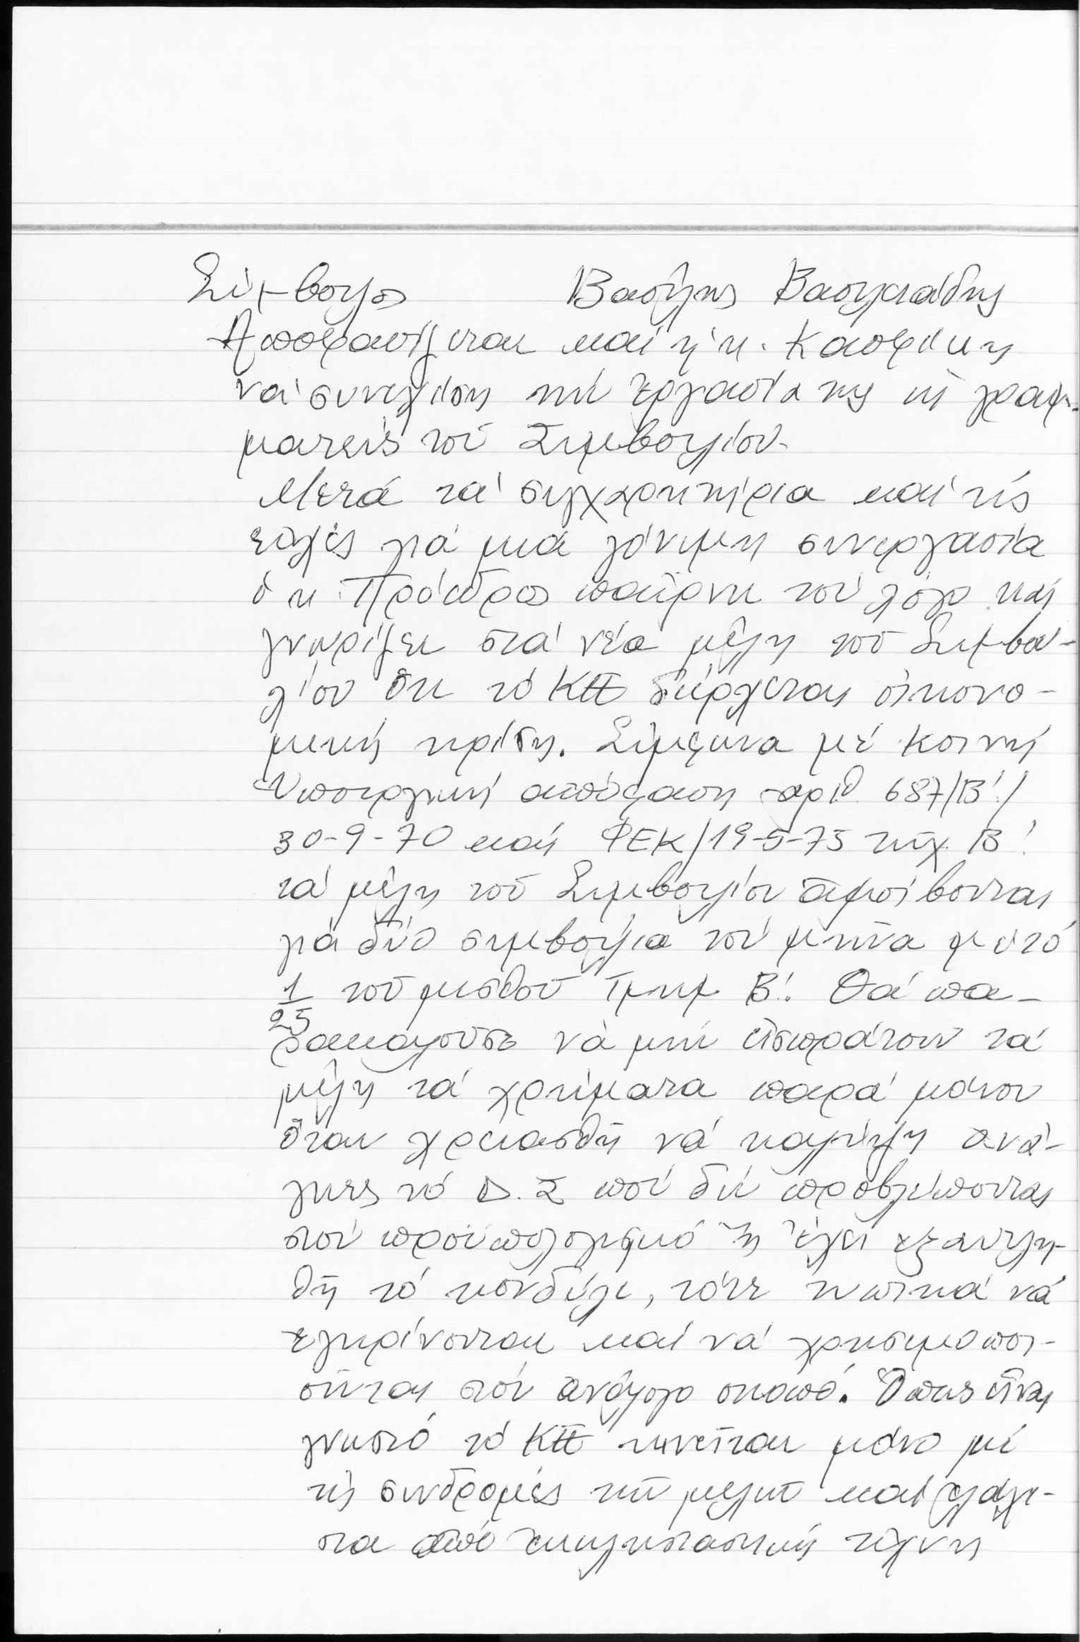 Σύμβουλος Βασίλης Βασιλειάδης
Ἀποφασίζεται καί ἡ κ. Κασφίκη
νά συνεχίση τήν ἐργασία της ὡς γραμ-
ματεύς τοῦ Συμβουλίου.
Μετά τά συγχαρητήρια καί τίς
εὐχές γιά μιά γόνιμη συνεργασία
ὁ κ. Πρόεδρος παίρνει τόν λόγο καί
γνωρίζει στά νέα μέλη τοῦ Συμβου-
λίου ὅτι τό ΚΠΕ διέρχεται οἰκονο-
μική κρίση. Σύμφωνα μέ Κοινή
Ὑπουργική ἀπόφαση ἀριθ. 687/Β'/
30-9-70 καί ΦΕΚ/19-5-75 τεῦχ. Β'
τά μέλη τοῦ Συμβουλίου ἀμοίβονται
γιά δύο συμβούλια τόν μῆνα μέ τό
1/25 τοῦ μισθοῦ Τμημ Β'. Θά πα-
ρακαλοῦσε νὰ μήν εἰσπράτουν τά
μέλη τά χρήματα παρά μόνον
ὅταν χρειασθῆ νά καλύψη ἀνά-
γκες τό Δ.Σ πού δέν προβλέπονται
στόν προϋπολογισμό ἤ ἔχει ἐξαντλη-
θῆ τό κονδύλι, τότε τυπικά νά
ἐγκρίνονται καί νά χρησιμοποι-
οῦνται στόν ἀνάλογο σκοπό. Ὅπως εἶναι
γνωστό τό ΚΠΕ κινεῖται μόνο μέ
τίς συνδρομές τῶν μελῶν καί ἐλάχι-
στα ἀπό ἐκκλησιαστικής τέχνης